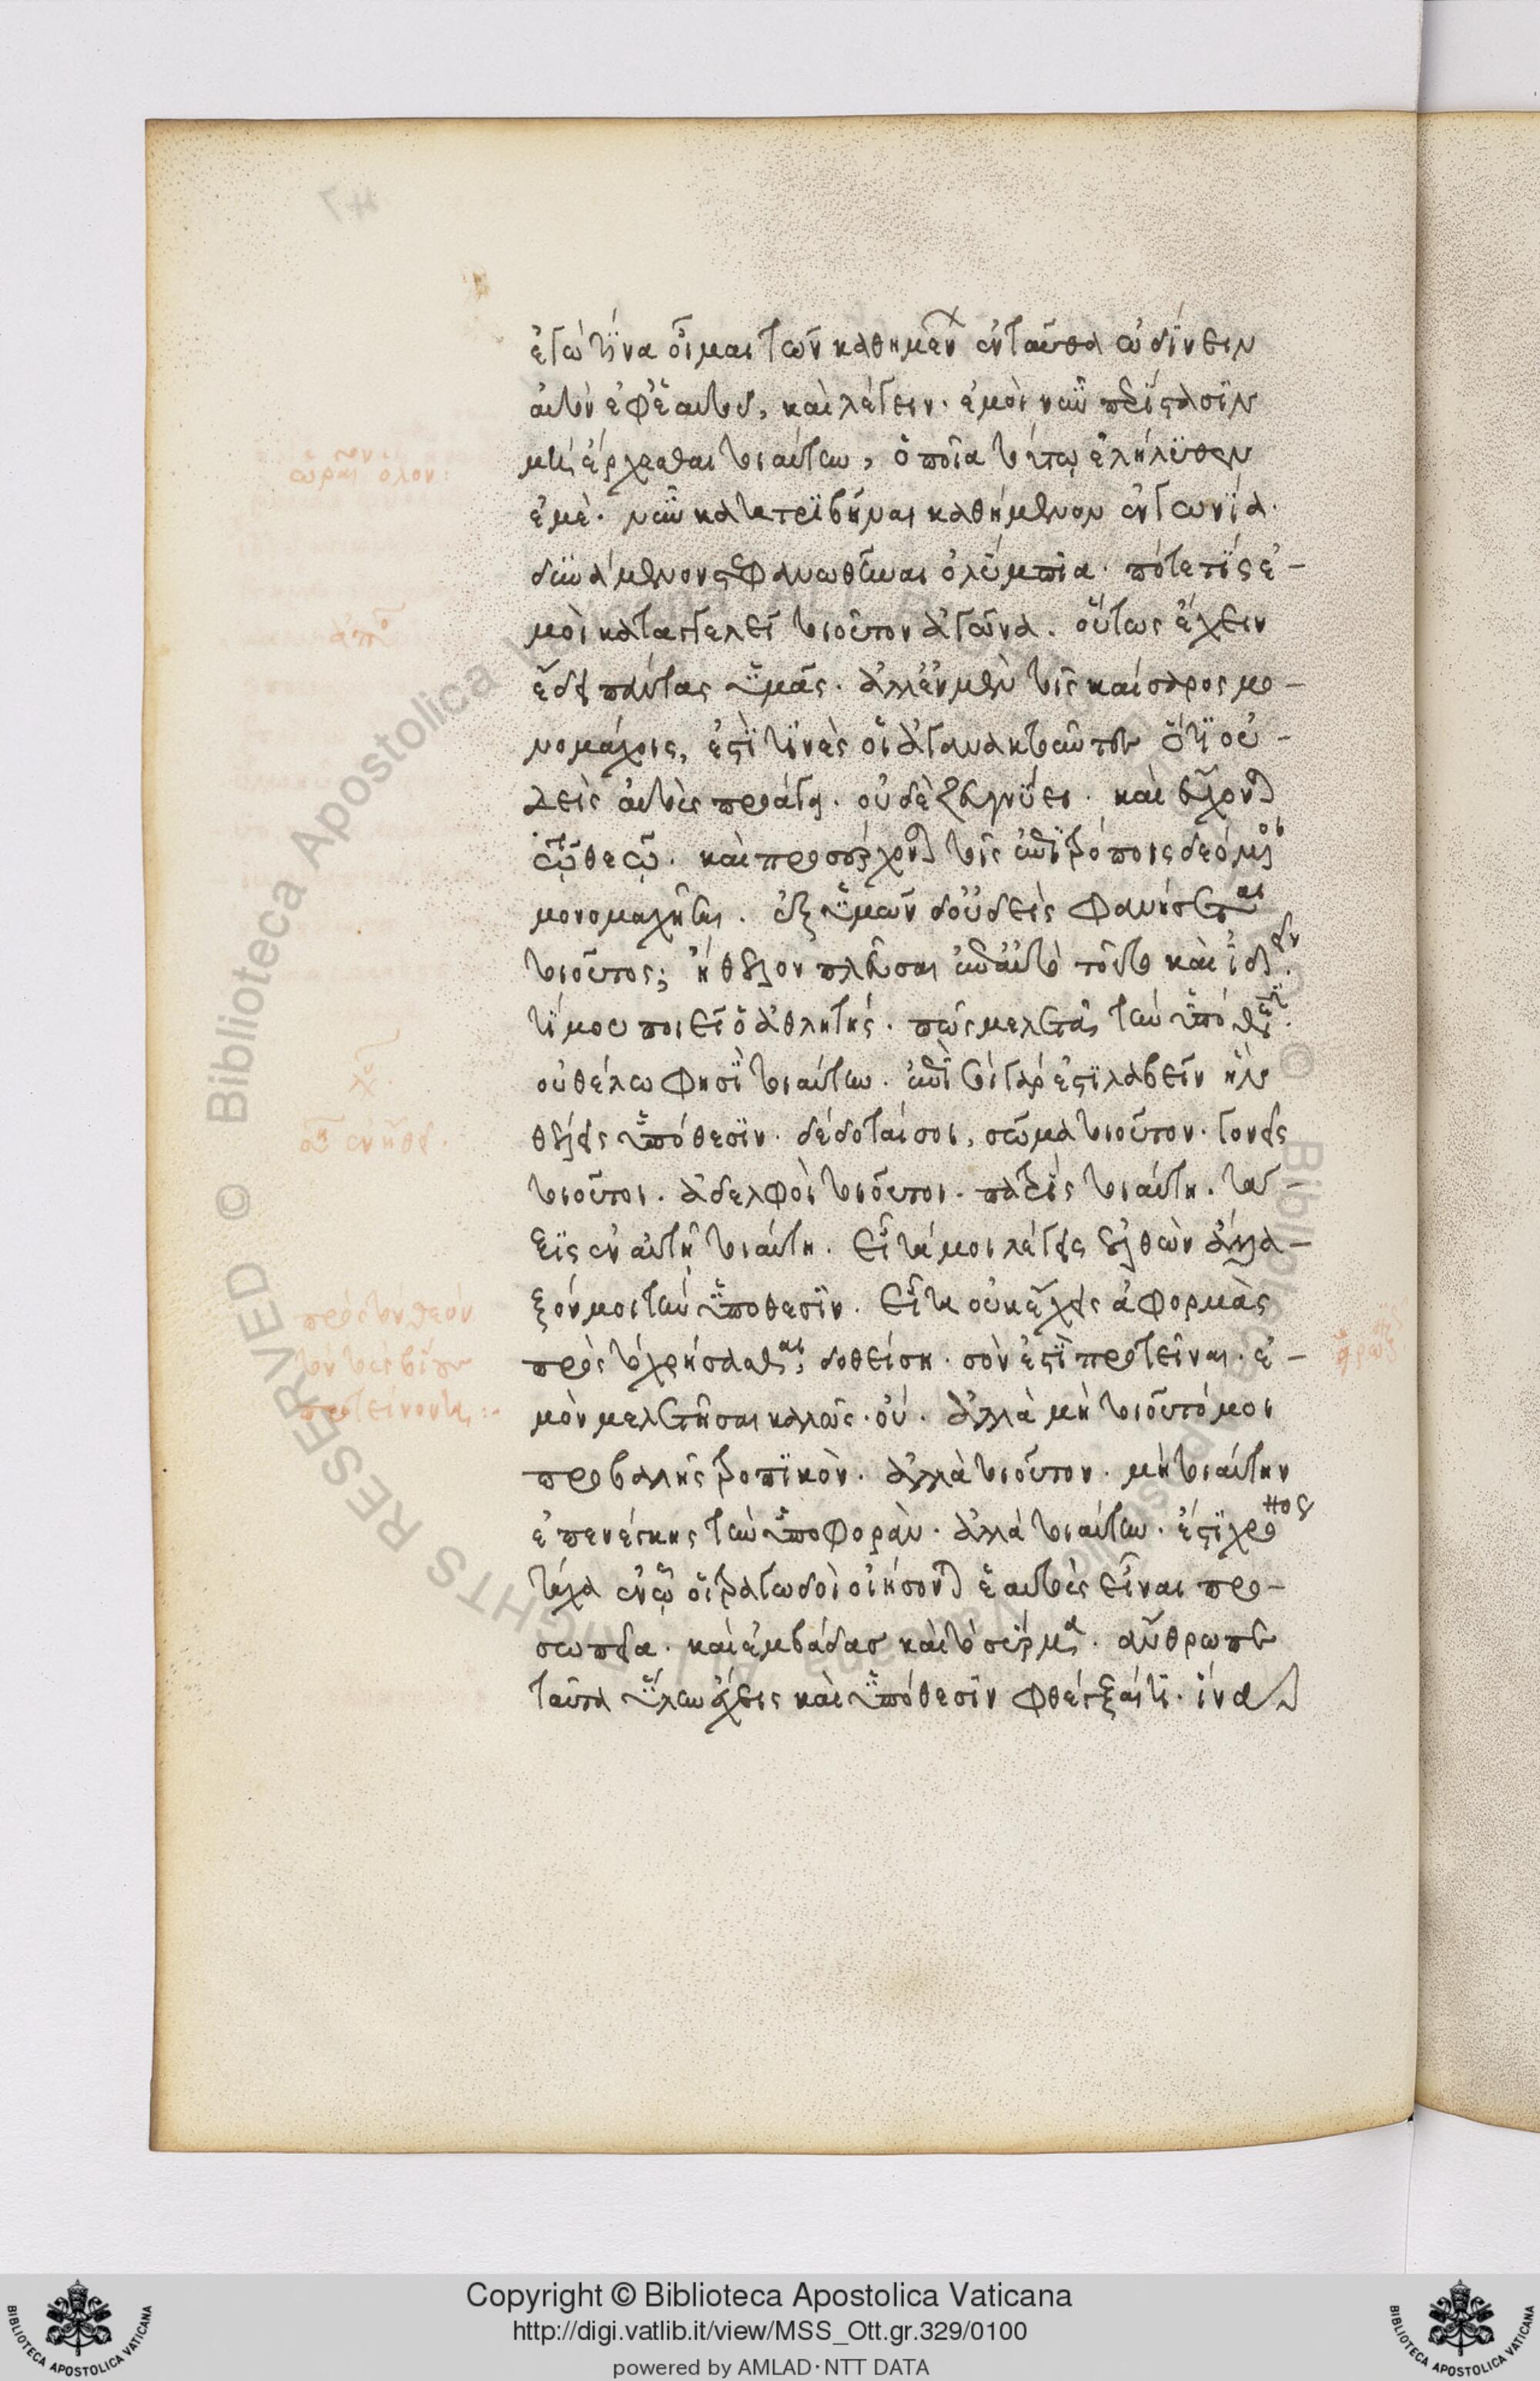 ἐγώ τινα οἶμαι τῶν καθημένων ἐνταῦθα ὠδίνειν
αὐτὸν ἐφ' ἑαυτοῦ, καὶ λέγειν· ἐμοὶ νῦν περίστασιν
μὴ ἔρχεσθαι τοιαύτην, ὁποία τούτῳ ἐλήλυθεν
ἐμὲ· νῦν κατατριβῆναι καθήμενον ἐν γωνίᾳ·
δυνάμενον στεφανωθῆναι ὀλύμπια· πότε τίς ἐ-
μοὶ καταγγελεῖ τοιοῦτον ἀγῶνα. οὕτως ἔχειν
ἔδει πάντας ὑμᾶς. ἀλλ' ἐν μὲν τοῖς καίσαρος μο-
νομάχοις, εἰσί τινὲς οἱ ἀγανακτοῦντες ὅτι οὐ-
δεὶς αὐτοὺς προάγει· οὐδὲ ζευγνύει· καὶ εὔχονται
τῷ θεῷ· καὶ προσέρχονται τοῖς ἐπιτρόποις δεόμενοι
μονομαχῆσαι. ἐξ ὑμῶν δ' οὐδεὶς φανήσεται
τοιοῦτος; ἤθελον πλεῦσαι ἐπ' αὐτὸ τοῦτο καὶ ἰδεῖν.
τί μου ποιεῖ ὁ ἀθλητής. πῶς μελετᾷ τὴν ὑπόθεσιν.
οὐ θέλω φησὶ τοιαύτην. ἐπὶ σοὶ γάρ ἐστι λαβεῖν ἣν
θέλεις ὑπόθεσιν. δέδοταί σοι, σῶμα τοιοῦτον. γονεῖς
τοιοῦτοι. ἀδελφοὶ τοιοῦτοι. πατρὶς τοιαύτη. τά-
ξις ἐν αὐτῇ τοιαύτη. εἶτά μοι λέγεις ἐλθὼν ἄλλα-
ξόν μοι τὴν ὑπόθεσιν. εἶτα οὐκ ἔχεις ἀφορμὰς
πρὸς τὸ χρήσασθαι δοθεῖσι. σὸν ἐστὶ προτεῖναι· ἐ-
μὸν μελετῆσαι καλῶς. οὔ. ἀλλὰ μὴ τοιοῦτό μοι
προβάλῃς τροπικὸν. ἀλλὰ τοιοῦτον. μὴ τοιαύτην
ἐπενέγκῃς τὴν ὑποφορὰν. ἀλλὰ τοιαύτην. ἔσται χρόνος
τάχα ἐν ᾧ οἱ τραγῳδοὶ οἰήσονται ἑαυτοὺς εἶναι προ-
σωπεῖα. καὶ ἐμβάδας καὶ τὸ σύρμα. ἄνθρωπε
ταῦτα ὕλην ἔχεις καὶ ὑπόθεσιν φθέγξαι τι. ἵνα
Copyright © Biblioteca Apostolica Vaticana
http://digi.vatlib.it/view/MSS_Ott.gr.329/0100
powered by AMLAD·NTT DATA